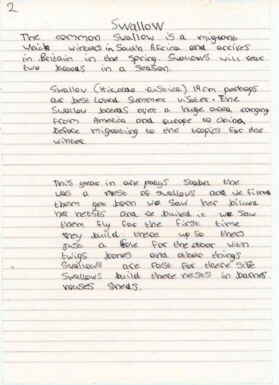 2
Swallow
The common Swallow is a migrant
winters in South Africa and arrives
in Britain in the Spring. Swallows will rear
two broods in a season.
Swallow 19cm perhaps
are best Loved Summer visitor. The
Swallow breeds over a large area ranging
from America and europe to china,
before migrating to the tropics for the
winter
This year in are
was a nest of swallows and we
them get born we saw her
her nests and build it we saw
them fly for the first time
they build there up so thers
just a for the door with
twigs and other things
Swallows are for there
Swallows build there nests in
houses Sheds.